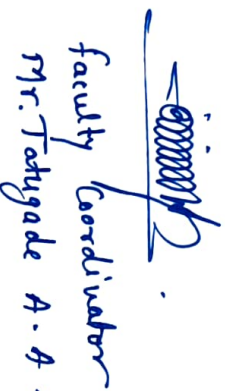 faculty Coordinator
Mr. Tatugade A. A.